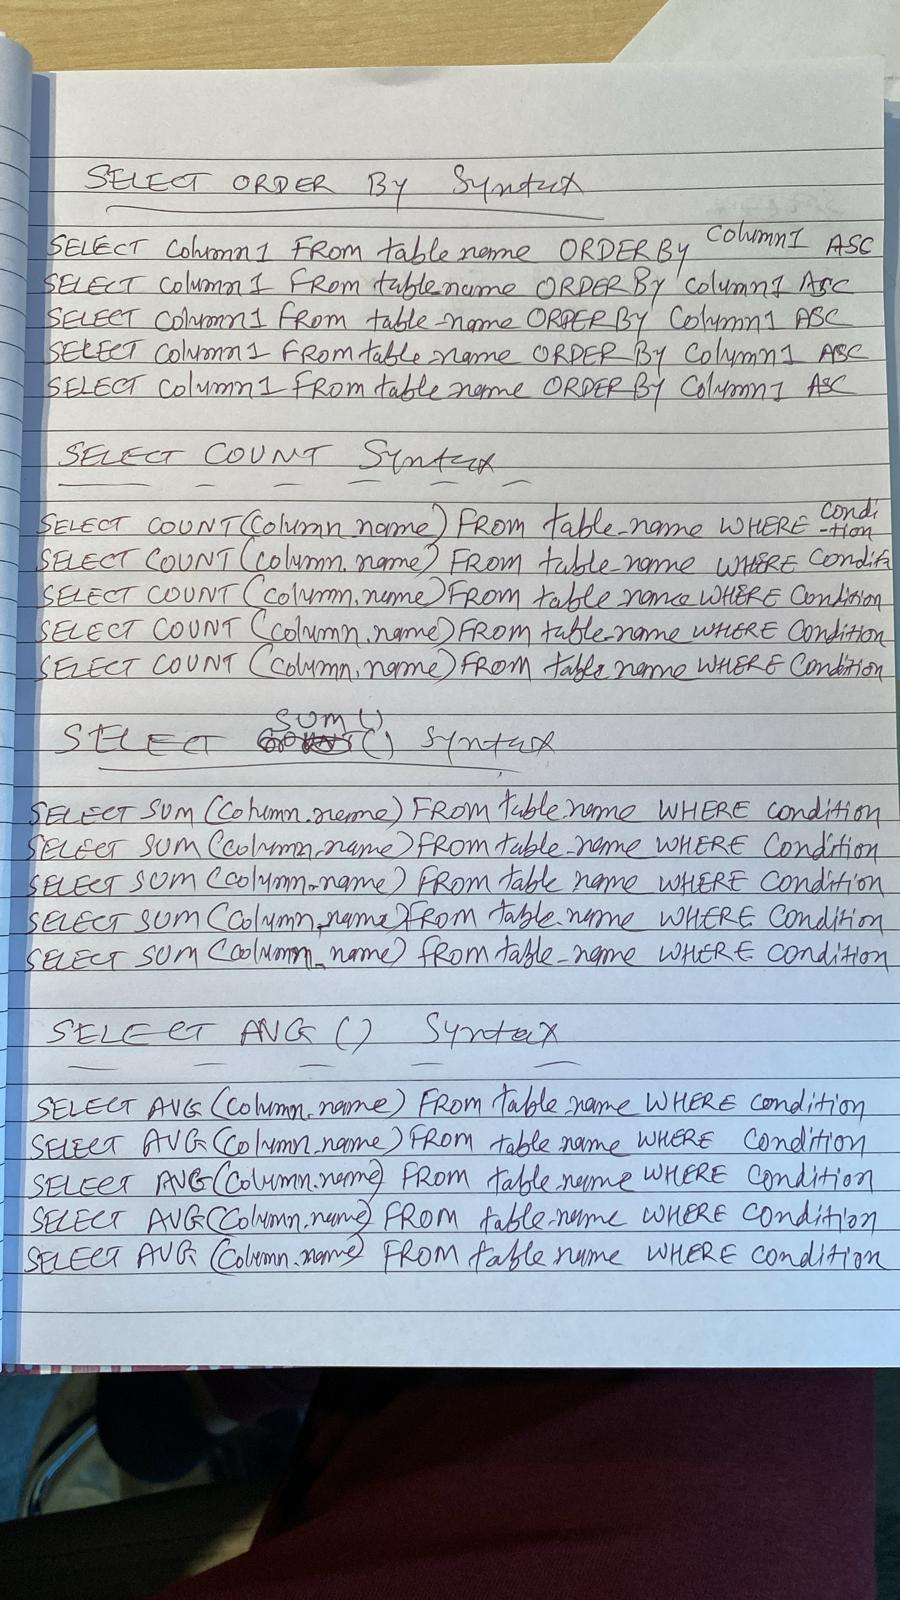 SELECT ORDER BY Syntax
SELECT Column1 FROM table name ORDER BY Column1 ASC
SELECT Column1 FROM table name ORDER BY Column1 ASC
SELECT Column1 FROM table_name ORDER BY Column1 ASC
SELECT Column1 FROM table_name ORDER BY Column1 ASC
SELECT Column1 FROM table name ORDER BY Column1 ASC
SELECT COUNT Syntax
SELECT COUNT(Column_name) FROM table_name WHERE Condi-tion
SELECT COUNT (column_name) FROM table_name WHERE Condit
SELECT COUNT (column_name) FROM table name WHERE Condition
SELECT COUNT (column_name) FROM table_name WHERE Condition
SELECT COUNT (column_name) FROM table name WHERE Condition
SELECT SUM() () Syntax
SELECT SUM (Column_name) FROM table_name WHERE condition
SELECT SUM (column_name) FROM table_name WHERE Condition
SELECT SUM (column_name) FROM table name WHERE Condition
SELECT SUM (Column_name) FROM table_name WHERE Condition
SELECT SUM (column_name) FROM table_name WHERE Condition
SELECT ANG () Syntax
SELECT AVG (Column_name) FROM table_name WHERE condition
SELECT AVG (Column_name) FROM table name WHERE Condition
SELECT AVG (Column_name) FROM table_name WHERE Condition
SELECT AVG (Column_name) FROM table_name WHERE Condition
SELECT AVG (Column_name) FROM table name WHERE condition